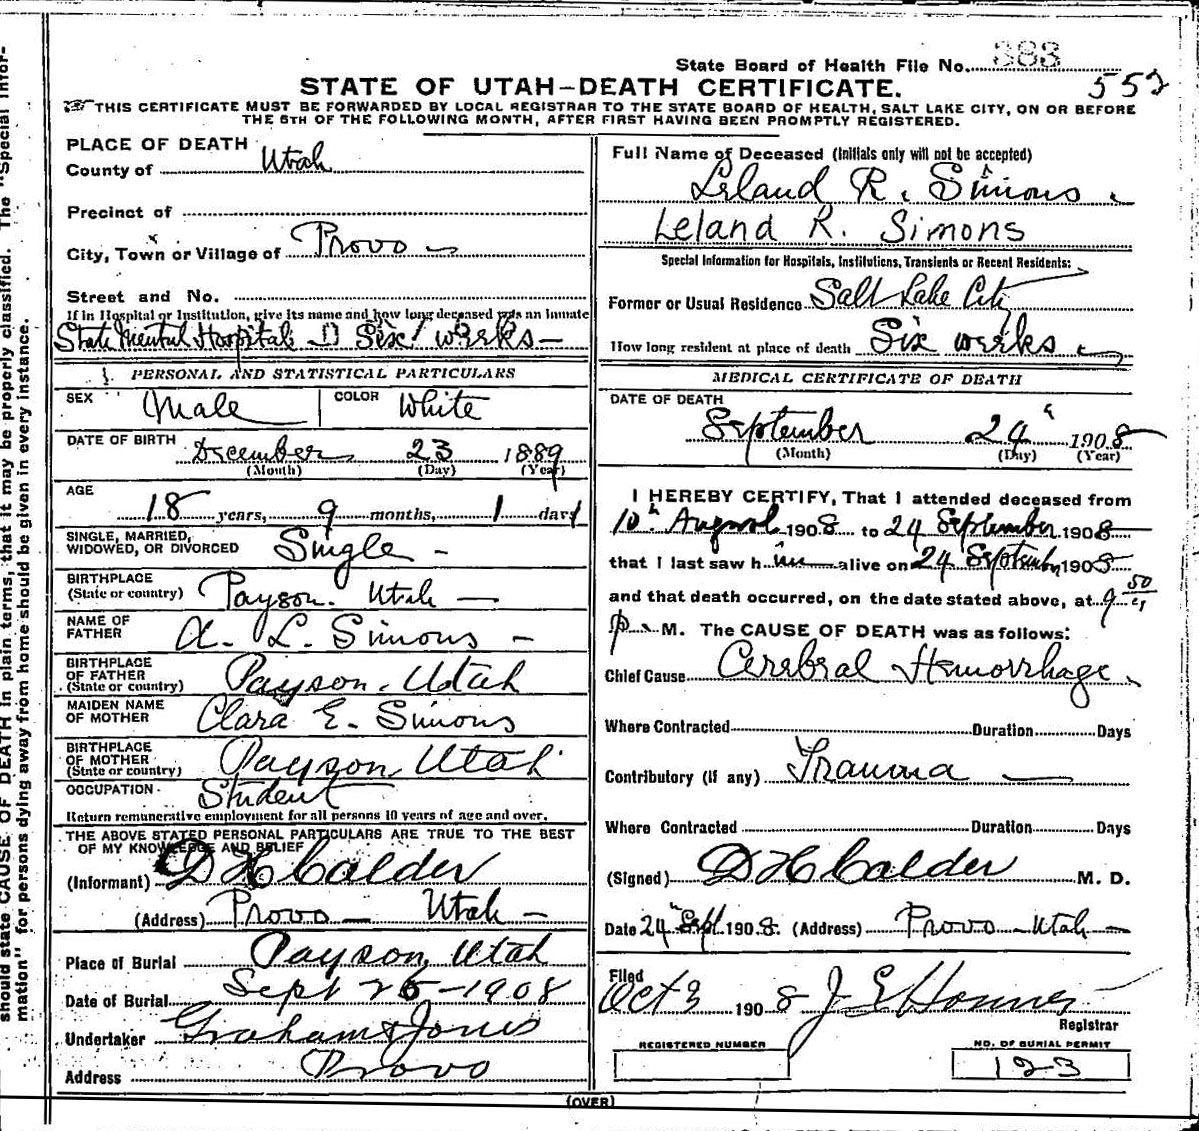 should state CAUSE OF DEATH in plain terms, that it may be properly classified. The "Special Infor-
mation" for persons dying away from home should be given in every instance.
State Board of Health File No. 383
552
STATE OF UTAH—DEATH CERTIFICATE.
THIS CERTIFICATE MUST BE FORWARDED BY LOCAL REGISTRAR TO THE STATE BOARD OF HEALTH, SALT LAKE CITY, ON OR BEFORE
THE 5TH OF THE FOLLOWING MONTH, AFTER FIRST HAVING BEEN PROMPTLY REGISTERED.
PLACE OF DEATH
County of Utah
Precinct of
City, Town or Village of Provo
Street and No.
If in Hospital or Institution, give its name and how long deceased was an inmate
State Mental Hospital Six weeks
PERSONAL AND STATISTICAL PARTICULARS
SEX Male COLOR White
DATE OF BIRTH December 23 1889
(Month) (Day) (Year)
AGE
18 years, 9 months, 1 days
SINGLE, MARRIED,
WIDOWED, OR DIVORCED Single
BIRTHPLACE
(State or country) Payson. Utah
NAME OF
FATHER A. L. Simons
BIRTHPLACE
OF FATHER
(State or country) Payson, Utah
MAIDEN NAME
OF MOTHER Clara E. Simons
BIRTHPLACE
OF MOTHER
(State or country) Payson, Utah
OCCUPATION Student
Return remunerative employment for all persons 10 years of age and over.
THE ABOVE STATED PERSONAL PARTICULARS ARE TRUE TO THE BEST
OF MY KNOWLEDGE AND BELIEF
(Informant) D H Calder
(Address) Provo Utah
Place of Burial Payson, Utah
Date of Burial Sept 26-1908
Undertaker Graham & Jones
Address Provo
Full Name of Deceased (Initials only will not be accepted)
Leland R. Simons
Leland R. Simons
Special Information for Hospitals, Institutions, Transients or Recent Residents:
Former or Usual Residence Salt Lake City
How long resident at place of death Six weeks
MEDICAL CERTIFICATE OF DEATH
DATE OF DEATH
September 24 1908
(Month) (Day) (Year)
I HEREBY CERTIFY, That I attended deceased from
10th August 1908 to 24 September 1908
that I last saw him alive on 24 September 1908
and that death occurred, on the date stated above, at 9 50
P. M. The CAUSE OF DEATH was as follows:
Chief Cause Cerebral Hemorrhage
Where Contracted Duration Days
Contributory (if any) Trauma
Where Contracted Duration Days
(Signed) D H Calder M. D.
Date 24 Sept. 1908. (Address) Provo Utah
Filed
Oct 3 1908 J E
Registrar
REGISTERED NUMBER
NO. OF BURIAL PERMIT
123
(OVER)